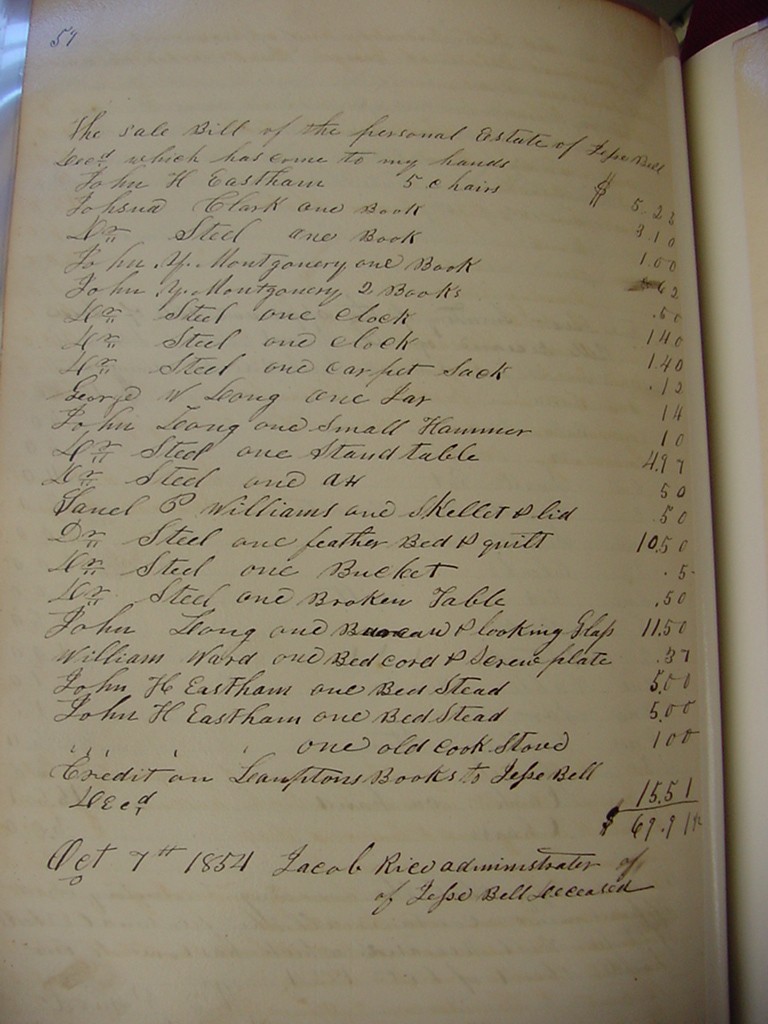 57
The sale Bill of the personal Estate of Jesse Bell
Decd which has come to my hands
John H Eastham 5 Chairs $ 5.25
Johsua Clark one Book 3.10
Dr Steel one Book 1.00
John Y. Montgonery one Book
John Y. Montgonery 2 Books .50
Dr Steel one Clock 140
Dr Steel one clock 1.40
Dr Steel one carpet Sack .12
George W Long one Jar 14
John Long one Small Hammer 10
Dr Steel one Stand table 4.97
Dr Steel one ax 50
P Williams one Skellet & lid .50
Dr Steel one feather Bed & quilt 10.50
Dr Steel one Bucket .5.
Dr Steel one Broken Table .50
John Long one Bureau & looking Glass 11.50
William Ward one Bed cord & Screw plate .37
John H Eastham one Bed Stead 5.00
John H Eastham one Bed Stead 5.00
" " " " one old cook Stove 100
Credit on Lamptons Books to Jesse Bell
Decd 15.51
$ 69.91½
Oct 7th 1854 Jacob Rice administrater of
of Jesse Bell Deceased